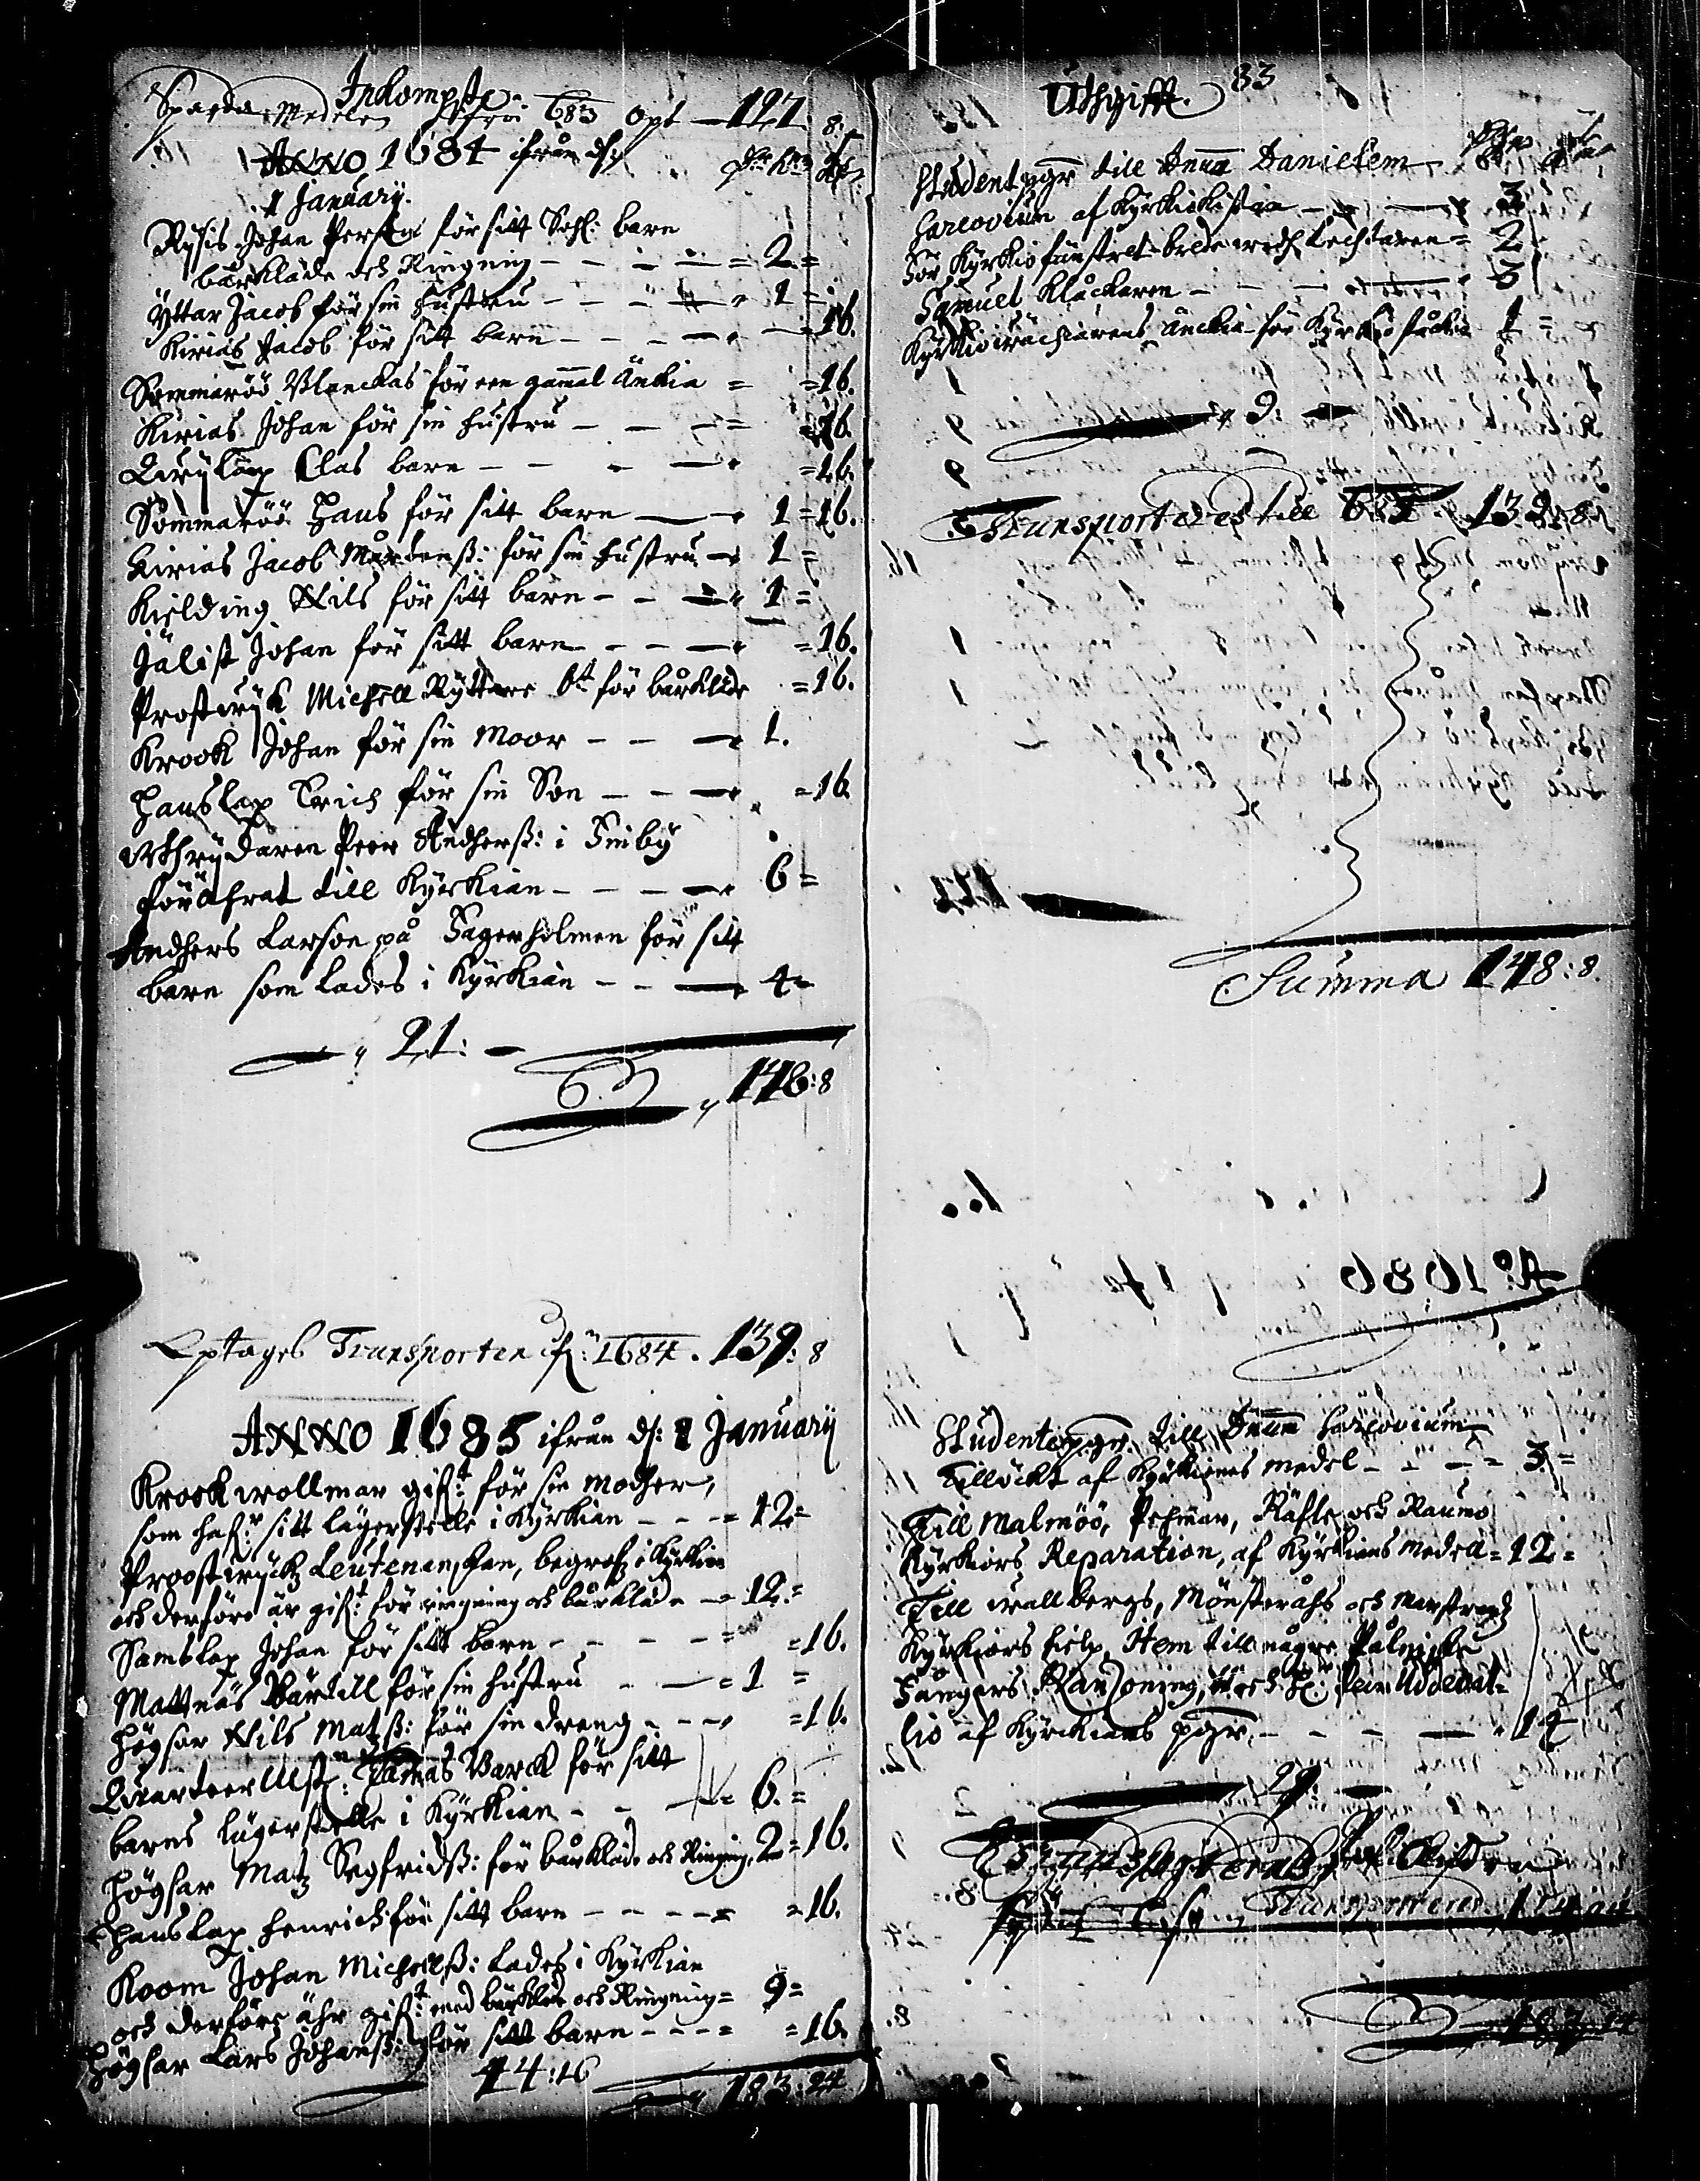 Inkompste
Sparda Medelen ifrån 683 Opt — 127: 8.
ANNO 1684 ifrån d:
1 January.
Rysis Johan Person för sitt Sahl: barn
bårkläde och Ringning — — — = 2 =
Yttar Jacob för sin hustru — — — 1 =
Kirias Jacob för sitt barn — — — = 16.
Sommaröö Blanckas för een gammal Änkia = = 16.
Kirias Johan för sin hustru — — — = 16.
Clas barn — — — = 16.
Sommaröö Hans för sitt barn — 1 = 16.
Kirias Jacob Mårtenß: för sin hustru — 1 =
Kielding Nils för sitt barn — — — 1 =
Jalist Johan för sitt barn — — — = 16.
Prostwijk Michell Ryttare för bårkläde = 16.
Krook Johan för sin Moor — — — 1.
Hanslax Erich för sin Son — — — = 16.
Peer Andherß: i Finby
förährat till Kyrkian — — — 6 =
Andhers Larson på Sagerholmen för sitt
barn som lades i Kyrkian — — — 4 =
21: —
148: 8
Optages Transporten if: 1684. 139: 8
ANNO 1685 ifrån d: 1 January
Krook wollmar gif:t för sin Modher,
som haf:r sitt lägerställe i Kyrkian — — = 12 =
Proostwijk Leutenan, begrof i Kyrkian
och derföre är gif:t för ringning och bårkläde — 12. =
Samslax Johan för sitt barn — — — = 16.
Mattnäs Bärtill för sin hustru — — = 1 =
Högsar Nils Matzß: för sin dreng — — — = 16.
Quarteer Mst: Tamas Barck för sitt
barns lägerställe i Kyrkian — — = 6. =
Högsar Matz Segfridß: för bårkläde och Ringning. 2 = 16.
Hanslax Henrich för sitt barn — — — = 16.
Koom Johan Michellß: lades i Kyrkian
och derföre ähr gif:t med bårkläde och Ringning = 9 =
Högsar Lars Johanß: för sitt barn — — — = 16.
44: 16
183: 24
Uthgifft. 83
Student pgr till Dnum Danielem
Carlovium af Kyrkiokistan — — — 3.
För Kyrkiofänstret = 2
Samuel Klåckaren — — — 3
Kyrkiowächtarens Änckia för — 1 =
9: —
Transporteres till 685. 139: 8.
Summa 148: 8.
Studentepgr. till Dnum Carlovium
Tillöckt af Kyrkiones medel — — — = 3. =
Till Malmöö, Pehmar, Räfle och Raumo
Kyrkiors Reparation, af Kyrkians medell = 12 =
Till wallbergs, Mönsteråhs och Marstrandz
Kyrkiors hielp, Item till någre
Fångers Ranzoning,
lio af Kyrckians pgr. — — — 14
29: —
Transporteres